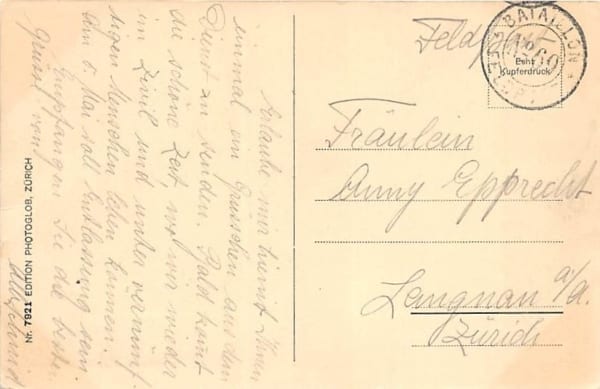 Erlaube mir hiermit Ihnen
einmal ein Grüsschen aus dem
Dienst zu senden. Bald kommt
die schöne Zeit, wo wir wieder
im Zivil und unter vernünf-
tigen Menschen leben können.
Am 6 Mai soll Entlassung sein.
Empfangen Sie die besten
Grüsse von
Nr. 7921 EDITION PHOTOGLOB, ZÜRICH
Feldpost
BATAILLON
Echt
Kupferdruck
Fräulein
Anny Epprecht
Lengnau a/A.
Zürich